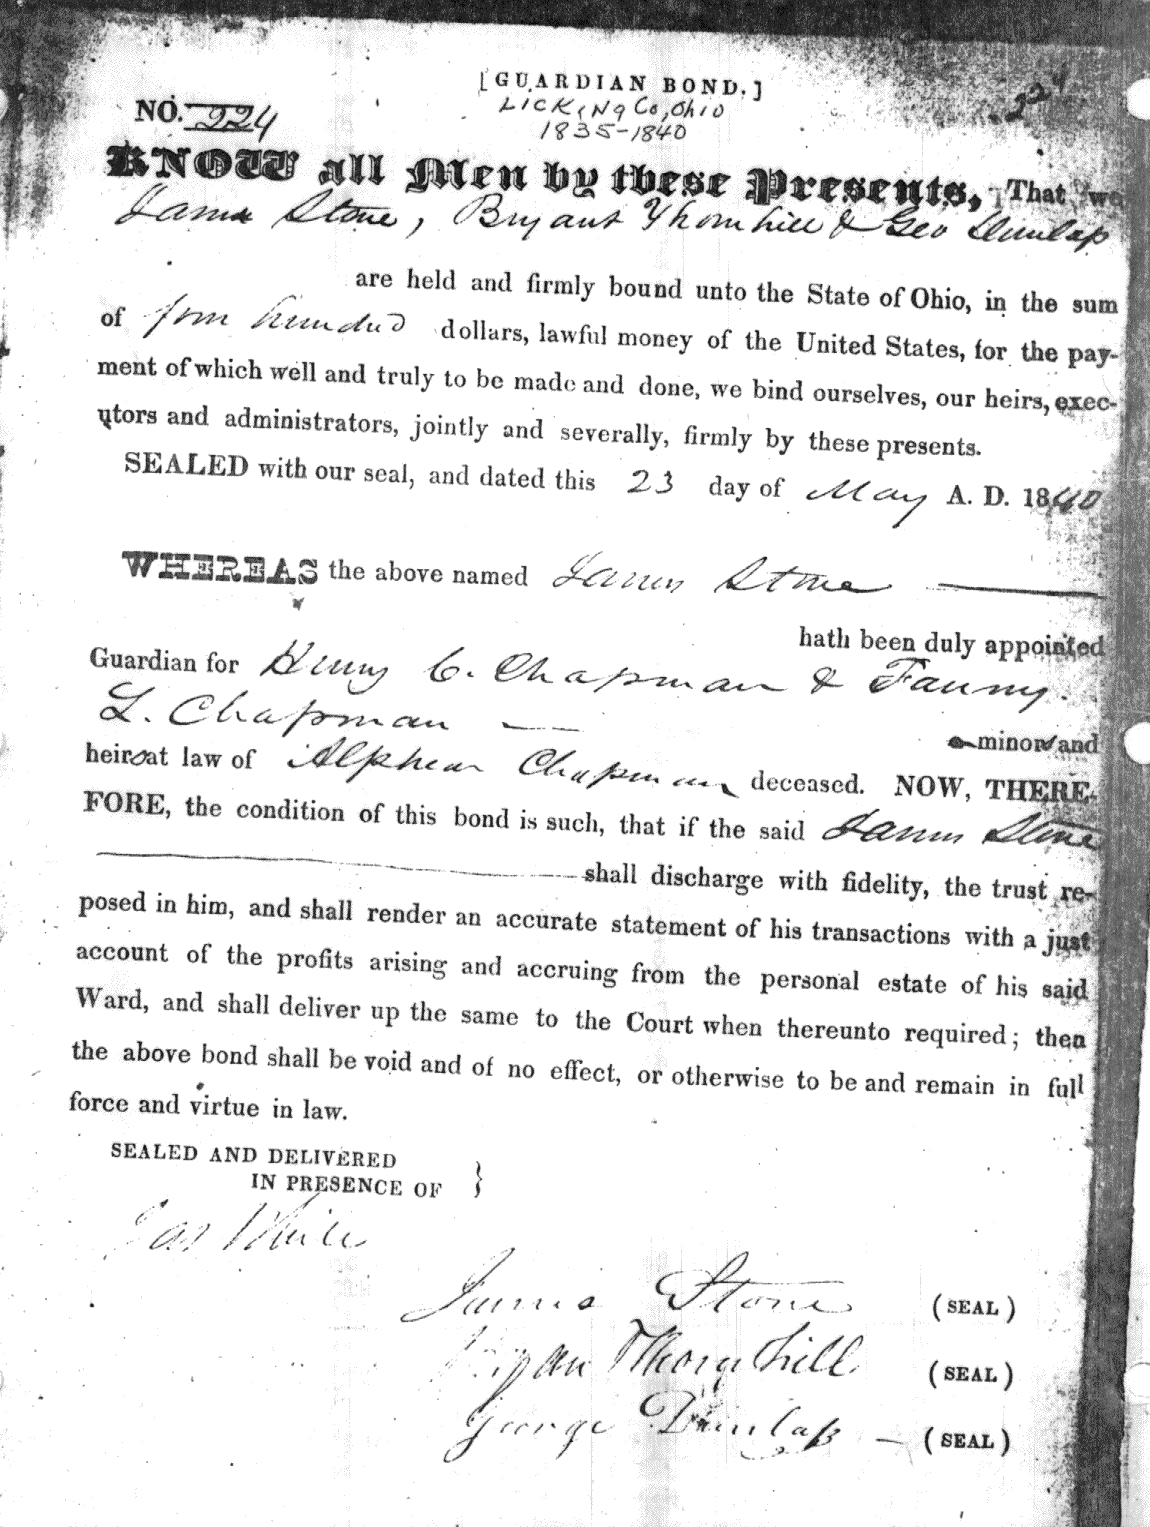 [GUARDIAN BOND.]
Licking Co, Ohio
1835-1840
NO. 224
224
KNOW all Men by these Presents, That we
James Stone, Bryant Thornhill & Geo Dunlap
are held and firmly bound unto the State of Ohio, in the sum
of four hundred dollars, lawful money of the United States, for the pay-
ment of which well and truly to be made and done, we bind ourselves, our heirs, exec-
utors and administrators, jointly and severally, firmly by these presents.
SEALED with our seal, and dated this 23 day of May A. D. 1840
WHEREAS the above named James Stone
hath been duly appointed
Guardian for Henry C. Chapman & Fanny
L. Chapman
minors and
heirs at law of Alpheus Chapman deceased. NOW, THERE-
FORE, the condition of this bond is such, that if the said James Stone
shall discharge with fidelity, the trust re-
posed in him, and shall render an accurate statement of his transactions with a just
account of the profits arising and accruing from the personal estate of his said
Ward, and shall deliver up the same to the Court when thereunto required; then
the above bond shall be void and of no effect, or otherwise to be and remain in full
force and virtue in law.
SEALED AND DELIVERED
IN PRESENCE OF }
Jas White
James Stone (SEAL)
Bryan Thornhill (SEAL)
George Dunlap (SEAL)